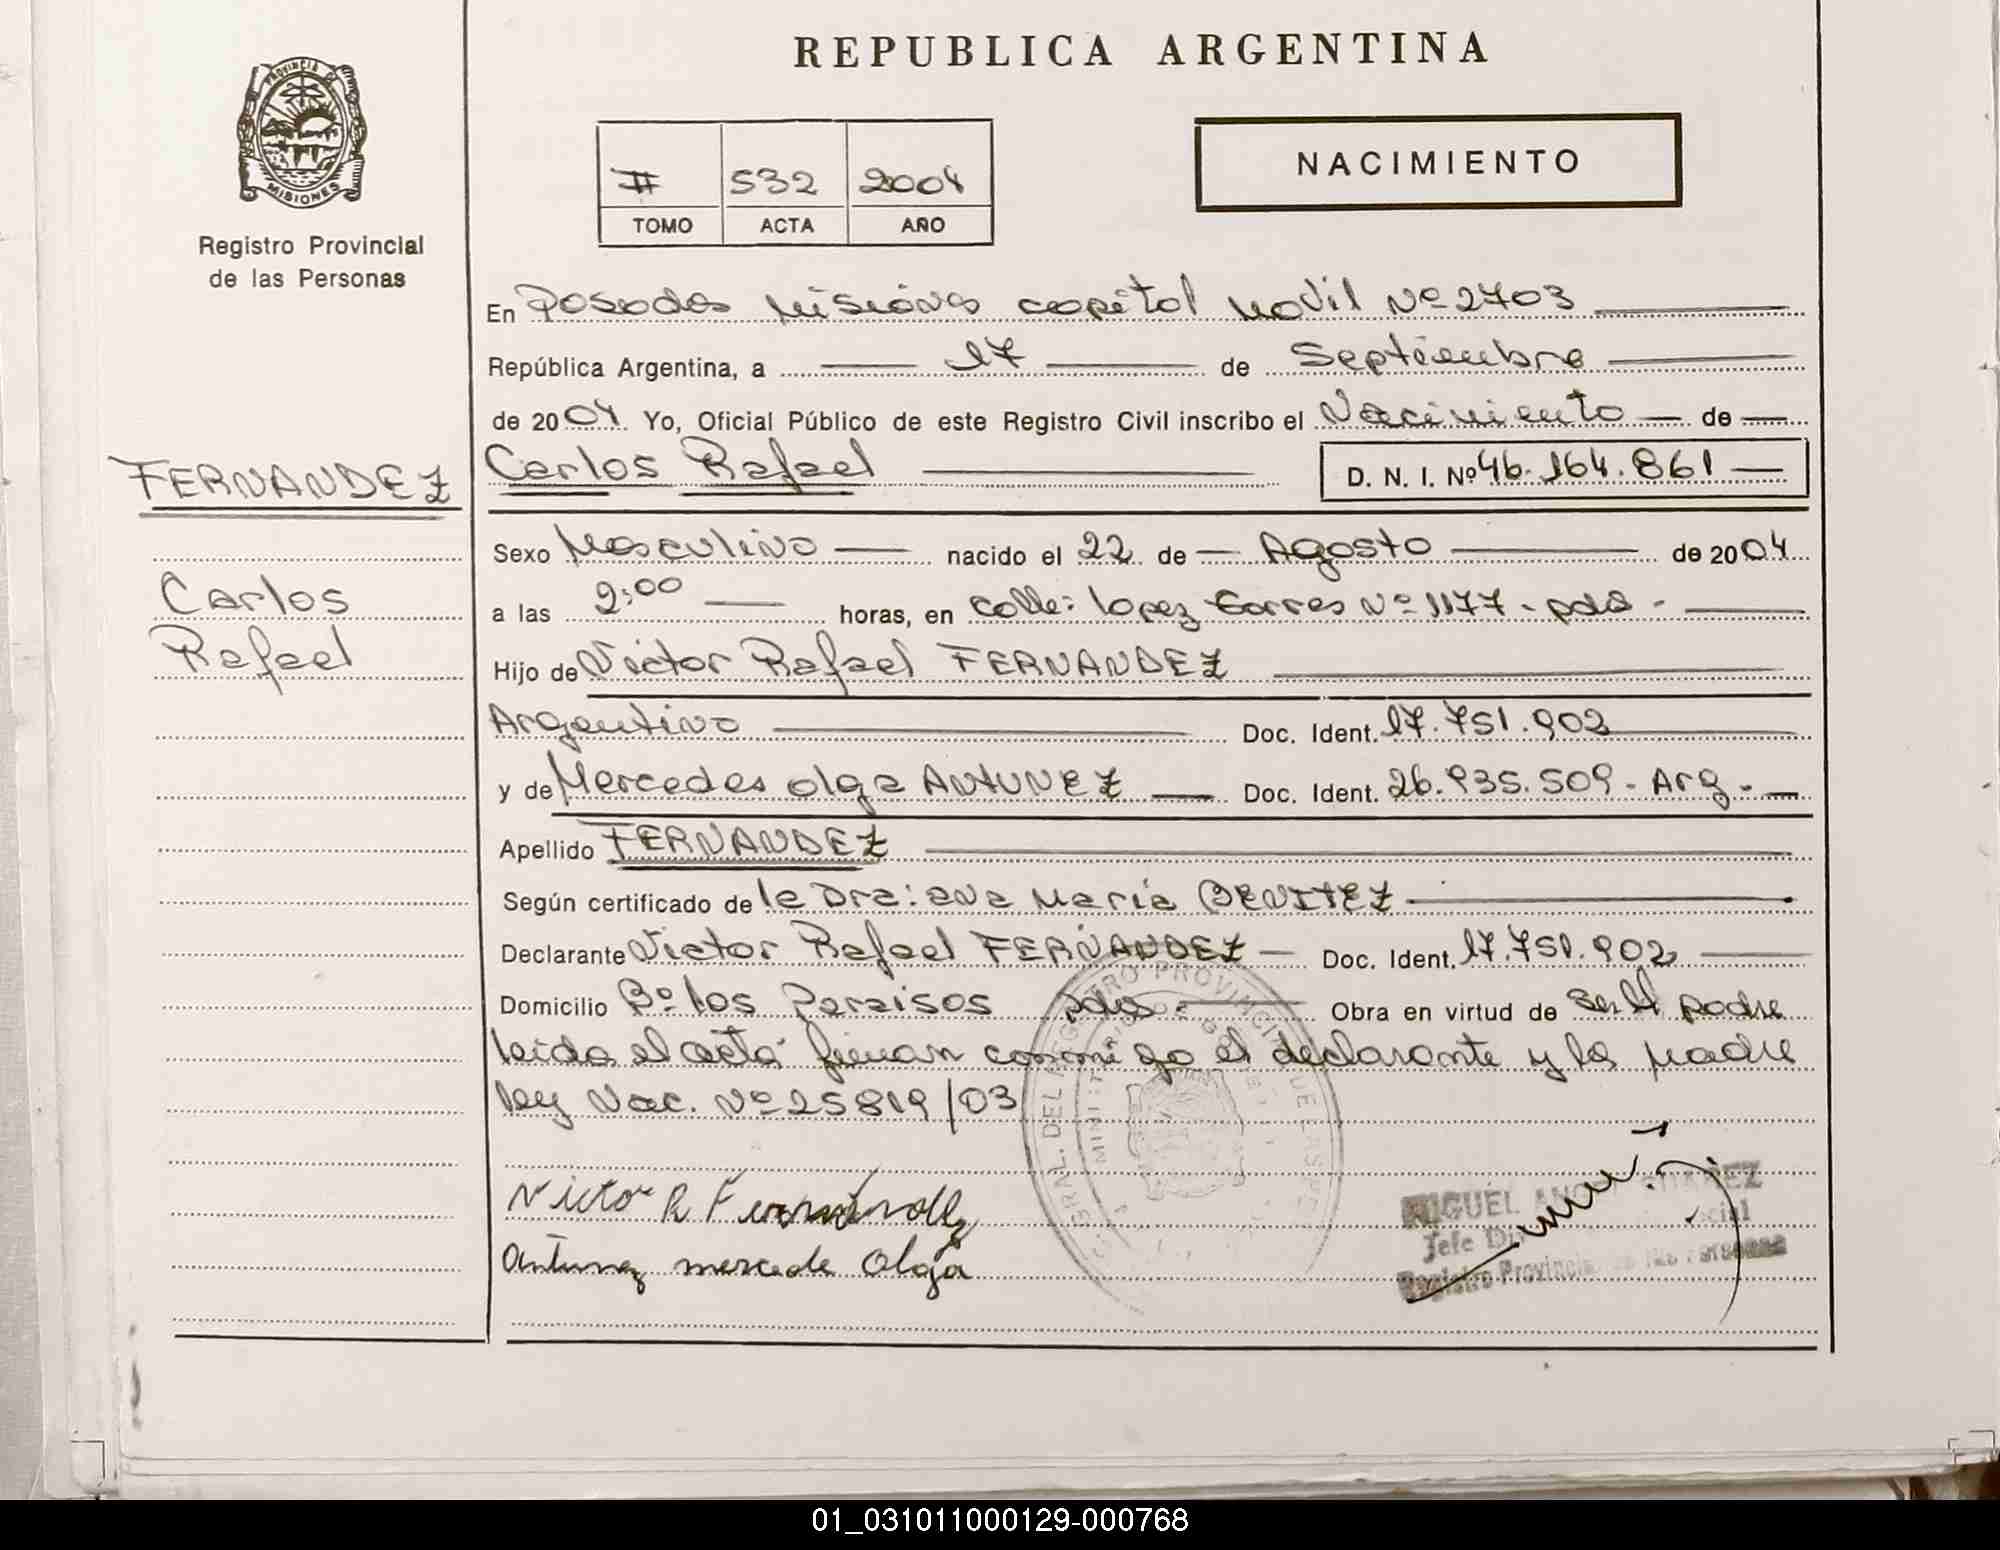 REPUBLICA ARGENTINA
PROVINCIA DE
MISIONES
Registro Provincial
de las Personas
II 532 2004
TOMO ACTA AÑO
NACIMIENTO
En Posadas Misiones capital Movil Nº 2703
República Argentina, a 17 de Septiembre
de 2004 Yo, Oficial Público de este Registro Civil inscribo el Nacimiento de
FERNANDEZ
Carlos Rafael D. N. I. Nº 46.164.861
Sexo Masculino nacido el 22 de Agosto de 2004
Carlos
a las 2:00 horas, en calle: lopez torres Nº 1177 - pdas -
Rafael
Hijo de Victor Rafael FERNANDEZ
Argentino Doc. Ident. 17.751.902
y de Mercedes olga ANTUNEZ Doc. Ident. 26.935.509 - Arg -
Apellido FERNANDEZ
Según certificado de la Dra: ana Maria BENITEZ
Declarante Victor Rafael FERNANDEZ Doc. Ident. 17.751.902
Domicilio Bº los Paraisos pdas - Obra en virtud de ser el padre
leida el acta firman conmigo el declarante y la madre
ley Nac. Nº 25819/03
Victor R Fernández
Antunez mercede Olga
MIGUEL
Jefe
Registro Provincial de las Personas
GRAL. DEL REGISTRO PROVINCIAL DE
01_031011000129-000768